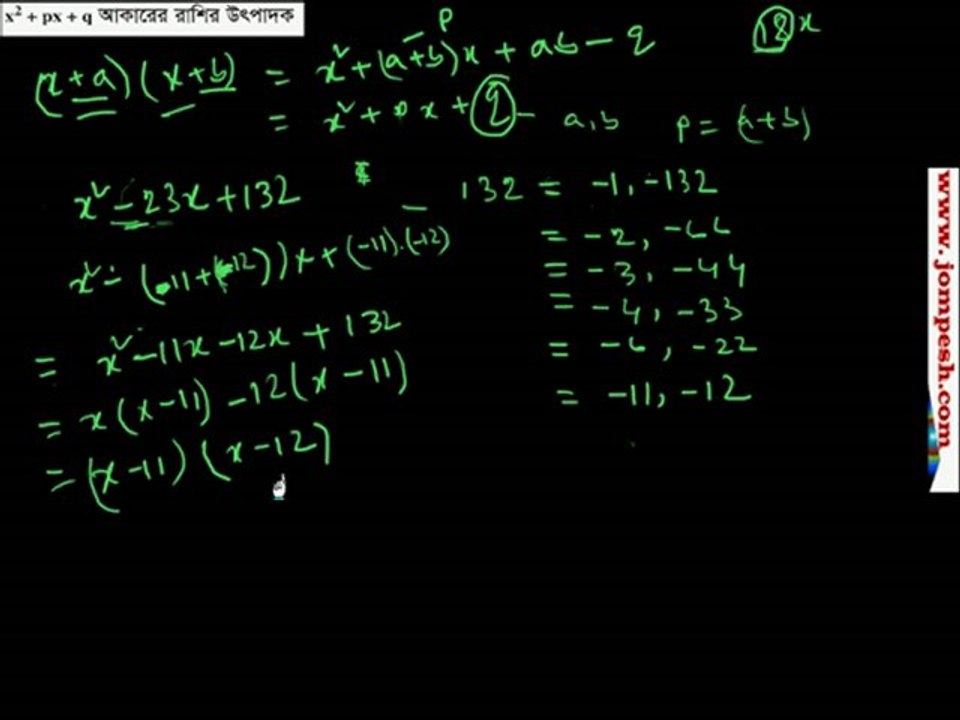 x² + px + q আকারের রাশির উৎপাদক
P
(x+a)(x+b) = x² + (a+b)x + ab - q
18x
= x² + p x + q - a,b P = (a+b)
x² - 23x + 132
- 132 = -1, -132
= -2, -66
x² - (-11+(-12))x + (-11).(-12)
= -3, -44
= -4, -33
= x² - 11x - 12x + 132
= -6, -22
= x(x-11) - 12(x-11)
= -11, -12
= (x-11)(x-12)
www.jompesh.com